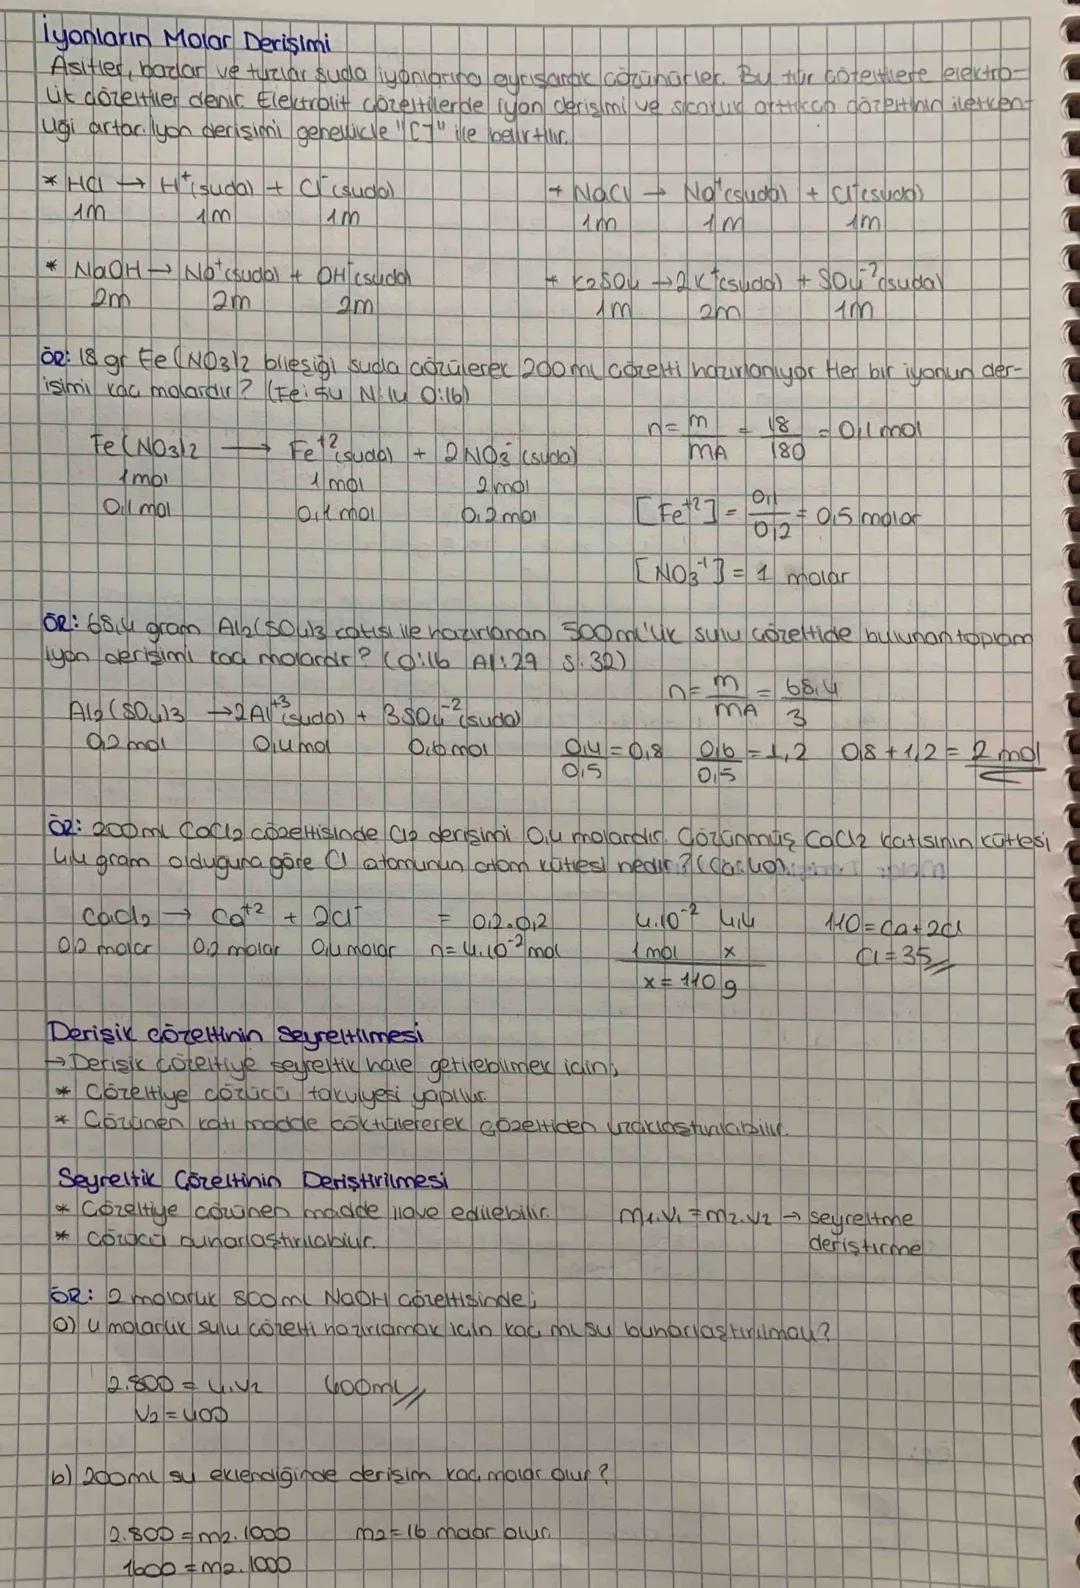 İyonların Molar Derişimi
Asitler, bazlar ve tuzlar suda iyonlarına ayrışarak çözünürler. Bu tür çözeltilere elektro-
lit çözeltiler denir. Elektrolit çözeltilerde iyon derişimi ve sıcaklık arttıkça çözeltinin iletken-
liği artar. İyon derişimi genellikle "[ ]" ile belirtilir.
* HCl → H⁺(suda) + Cl⁻(suda)
1m 1m 1m
* NaCl → Na⁺(suda) + Cl⁻(suda)
1m 1m 1m
* NaOH → Na⁺(suda) + OH⁻(suda)
2m 2m 2m
* K2SO4 → 2K⁺(suda) + SO4⁻²(suda)
1m 2m 1m
ÖR: 18 gr Fe(NO3)2 bileşiği suda çözülerek 200 mL çözelti hazırlanıyor Her bir iyonun der-
işimi kaç molardır? (Fe:54 N:14 O:16)
Fe(NO3)2 → Fe⁺²(suda) + 2NO3⁻(suda)
1mol 1mol 2mol
0,1 mol 0,1 mol 0,2 mol
n = m/MA = 18/180 = 0,1 mol
[Fe⁺²] = 0,1/0,2 = 0,5 molar
[NO3⁻¹] = 1 molar
ÖR: 68,4 gram Al2(SO4)3 katısı ile hazırlanan 500 mL'lik sulu çözeltide bulunan toplam
iyon derişimi kaç molardır? (O:16 Al:29 S:32)
Al2(SO4)3 → 2Al⁺³(suda) + 3SO4⁻²(suda)
0,2 mol 0,4 mol 0,6 mol
n = m/MA = 68,4/3
0,4/0,5 = 0,8 0,6/0,5 = 1,2 0,8 + 1,2 = 2 mol
ÖR: 200 mL CaCl2 çözeltisinde Cl2 derişimi 0,4 molardır. Çözünmüş CaCl2 katısının kütlesi
4,4 gram olduğuna göre Cl atomunun atom kütlesi nedir? (Ca:40)
CaCl2 → Ca⁺² + 2Cl⁻
0,2 molar 0,2 molar 0,4 molar
= 0,2.0,2
n = 4.10⁻² mol
4.10⁻² 4,4
1mol x
x = 110 g
110 = Ca + 2Cl
Cl = 35
Derişik Çözeltinin Seyreltilmesi
→ Derişik çözeltiye seyreltik hale getirebilmek için;
* Çözeltiye çözücü takviyesi yapılır.
* Çözünen katı madde çöktürülerek çözeltiden uzaklaştırılabilir.
Seyreltik Çözeltinin Deriştirilmesi
* Çözeltiye çözünen madde ilave edilebilir.
* Çözücü buharlaştırılabilir.
m1.V1 = m2.V2 → seyreltme
deriştirme
ÖR: 2 molarlık 800 mL NaOH çözeltisinde;
a) 4 molarlık sulu çözelti hazırlamak için kaç mL su buharlaştırılmalı?
2.800 = 4.V2
V2 = 400
400mL
b) 200 mL su eklendiğinde derişim kaç molar olur?
2.800 = m2.1000
1600 = m2.1000
m2 = 16 molar olur.